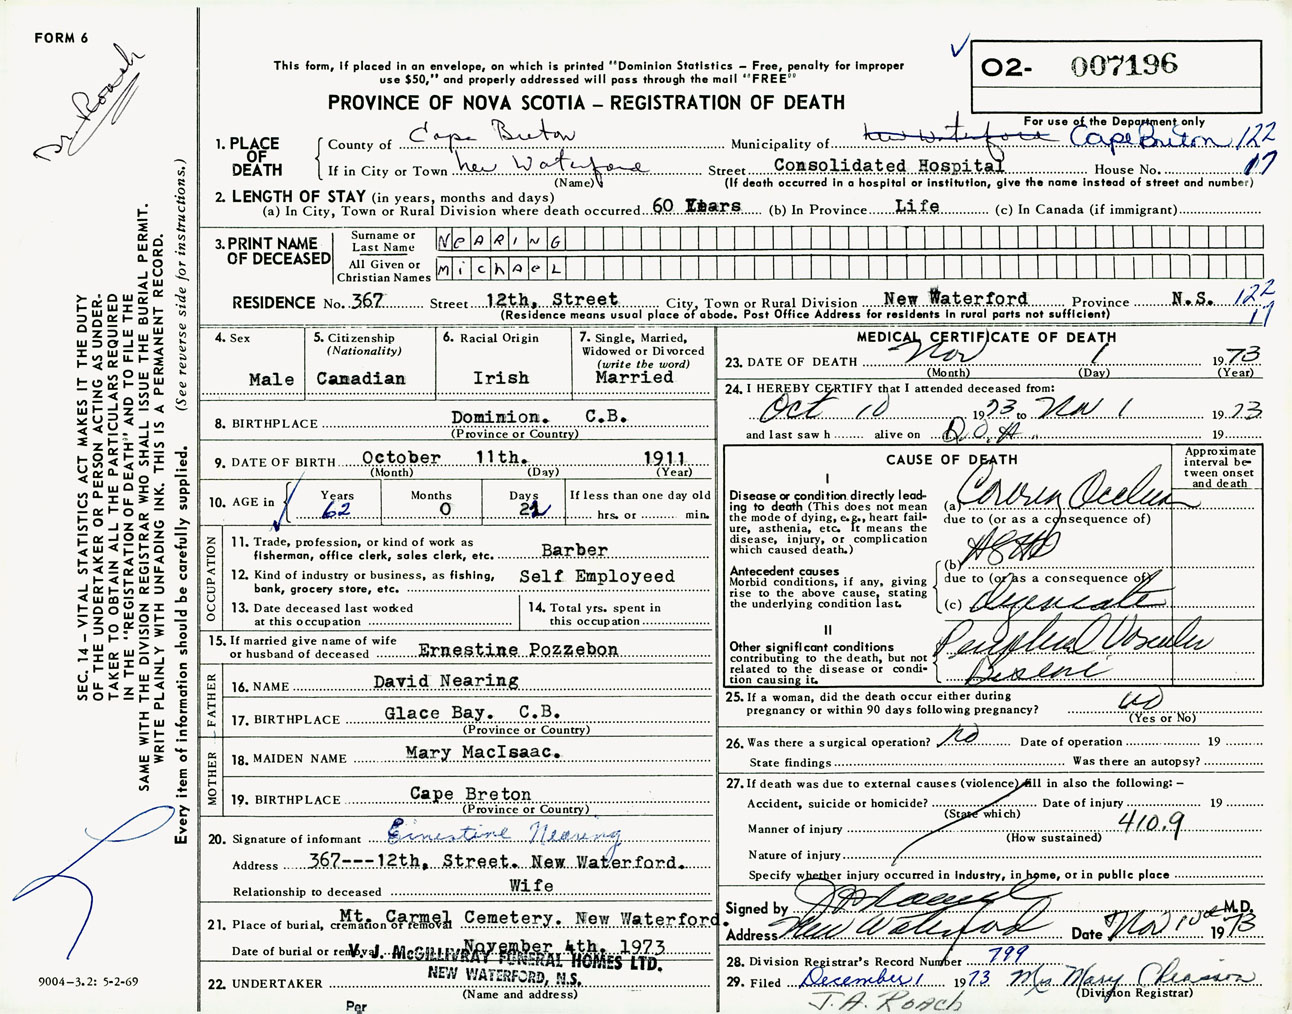 FORM 6
Dr. Roach
This form, if placed in an envelope, on which is printed "Dominion Statistics – Free, penalty for improper
use $50," and properly addressed will pass through the mail "FREE"
PROVINCE OF NOVA SCOTIA – REGISTRATION OF DEATH
O2- 007196
For use of the Department only
1. PLACE OF DEATH
County of Cape Breton Municipality of New Waterford Cape Breton 122
If in City or Town New Waterford Street Consolidated Hospital House No. 17
(Name) (If death occurred in a hospital or institution, give the name instead of street and number)
2. LENGTH OF STAY (in years, months and days)
(a) In City, Town or Rural Division where death occurred 60 Years (b) In Province Life (c) In Canada (if immigrant)
3. PRINT NAME OF DECEASED
Surname or Last Name NEARING
All Given or Christian Names MICHAEL
RESIDENCE No. 367 Street 12th, Street City, Town or Rural Division New Waterford Province N.S. 122
(Residence means usual place of abode. Post Office Address for residents in rural parts not sufficient) 17
4. Sex
Male
5. Citizenship
(Nationality)
Canadian
6. Racial Origin
Irish
7. Single, Married,
Widowed or Divorced
(write the word)
Married
8. BIRTHPLACE Dominion. C.B.
(Province or Country)
9. DATE OF BIRTH October 11th. 1911
(Month) (Day) (Year)
10. AGE in Years 62 Months 0 Days 21 If less than one day old
hrs. or min.
OCCUPATION
11. Trade, profession, or kind of work as
fisherman, office clerk, sales clerk, etc. Barber
12. Kind of industry or business, as fishing,
bank, grocery store, etc. Self Employeed
13. Date deceased last worked
at this occupation
14. Total yrs. spent in
this occupation
15. If married give name of wife
or husband of deceased Ernestine Pozzebon
FATHER
16. NAME David Nearing
17. BIRTHPLACE Glace Bay. C.B.
(Province or Country)
MOTHER
18. MAIDEN NAME Mary MacIsaac.
19. BIRTHPLACE Cape Breton
(Province or Country)
20. Signature of informant Ernestine Nearing
Address 367---12th, Street. New Waterford.
Relationship to deceased Wife
21. Place of burial, cremation or removal Mt. Carmel Cemetery. New Waterford.
Date of burial or removal November 4th. 1973
V. J. McGILLIVRAY FUNERAL HOMES LTD.
NEW WATERFORD, N.S.
22. UNDERTAKER
(Name and address)
Per
MEDICAL CERTIFICATE OF DEATH
23. DATE OF DEATH Nov 1 1973
(Month) (Day) (Year)
24. I HEREBY CERTIFY that I attended deceased from:
Oct 10 1973 to Nov 1 1973
and last saw h alive on D.O.A. 19
CAUSE OF DEATH
Approximate
interval be-
tween onset
and death
I
Disease or condition directly lead-
ing to death (This does not mean
the mode of dying, e.g., heart fail-
ure, asthenia, etc. It means the
disease, injury, or complication
which caused death.)
(a) Coronary Occlusion
due to (or as a consequence of)
Antecedent causes
Morbid conditions, if any, giving
rise to the above cause, stating
the underlying condition last.
(b) ASHD
due to (or as a consequence of)
(c)
II
Other significant conditions
contributing to the death, but not
related to the disease or condi-
tion causing it.
Peripheral Vascular
Disease
25. If a woman, did the death occur either during
pregnancy or within 90 days following pregnancy? no
(Yes or No)
26. Was there a surgical operation? no Date of operation 19
State findings Was there an autopsy?
27. If death was due to external causes (violence) fill in also the following: –
Accident, suicide or homicide? Date of injury 19
(State which)
Manner of injury 410.9
(How sustained)
Nature of injury
Specify whether injury occurred in industry, in home, or in public place
Signed by M.D.
Address New Waterford Date Nov 1973
28. Division Registrar's Record Number 799
29. Filed December 1 1973 Mrs Mary Chiasson
(Division Registrar)
J. A. ROACH
SEC. 14 – VITAL STATISTICS ACT MAKES IT THE DUTY
OF THE UNDERTAKER OR PERSON ACTING AS UNDER-
TAKER TO OBTAIN ALL THE PARTICULARS REQUIRED
IN THE "REGISTRATION OF DEATH" AND TO FILE THE
SAME WITH THE DIVISION REGISTRAR WHO SHALL ISSUE THE BURIAL PERMIT.
WRITE PLAINLY WITH UNFADING INK. THIS IS A PERMANENT RECORD.
Every item of information should be carefully supplied. (See reverse side for instructions.)
9004-3.2: 5-2-69